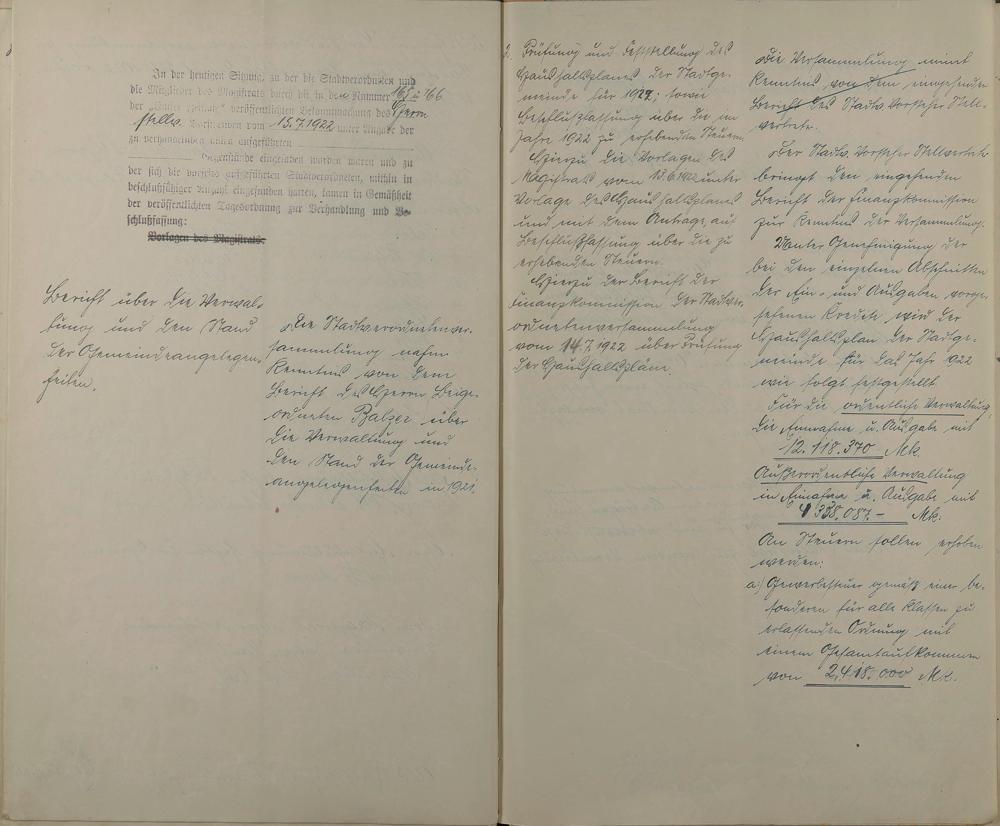 In der heutigen Sitzung, zu der die Stadtverordneten und
die Mitglieder des Magistrats durch die in den Nummer 165 u 166
der veröffentlichten Bekanntmachung des Herrn
stellv. Vorstehers vom 15.7.1922 unter Angabe der
zu verhandelnden unten aufgeführten
Gegenstände eingeladen worden waren und zu
der sich die vorseits aufgeführten Stadtverordneten, mithin in
beschlußfähiger Anzahl eingefunden hatten, kamen in Gemäßheit
der veröffentlichten Tagesordnung zur Verhandlung und Be-
schlußfassung:
Vorlagen des Magistrats.
Bericht über die Verwal-
tung und den Stand
der Gemeindeangelegen-
heiten.
Die Stadtverordnetenver-
sammlung nahm
Kenntnis von dem
Bericht des Herrn Beige-
ordneten Balzer über
die Verwaltung und
den Stand der Gemeinde-
angelegenheiten in 1921.
2. Prüfung und Feststellung des
Haushaltsplanes der Stadtge-
meinde für 1922, sowie
Beschlußfassung über die im
Jahre 1922 zu erhebenden Steuern.
Hierzu die Vorlagen des
Magistrats vom 13.6.1922 unter
Vorlage des Haushaltsplanes
und mit dem Antrage auf
Beschlußfassung über die zu
erhebenden Steuern.
Hierzu der Bericht der
Finanzkommission der Stadtver-
ordnetenversammlung
vom 14.7.1922 über Prüfung
der Haushaltspläne.
Die Versammlung nimmt
Kenntnis von dem eingehenden
Bericht des Stadtv. Vorsteher Stell-
vertreter.
Der Stadtv. Vorsteher Stellvertreter
bringt den eingehenden
Bericht der Finanzkommission
zur Kenntnis der Versammlung.
Unter Genehmigung der
bei den einzelnen Abschnitten
der Ein- und Ausgaben vorge-
sehenen Kredite wird der
Haushaltsplan der Stadtge-
meinde für das Jahr 1922
wie folgt festgestellt
Für die ordentliche Verwaltung,
die Einnahme u. Ausgabe mit
12.118.370 Mk.
Außerordentliche Verwaltung
in Einnahme u. Ausgabe mit
4 338.087.- Mk:
An Steuern sollen erhoben
werden:
a) Gewerbesteuer gemäß einer be-
sonderen für alle Klassen zu
erlassenden Ordnung mit
einem Gesamtaufkommen
von 2.418.000 Mk.